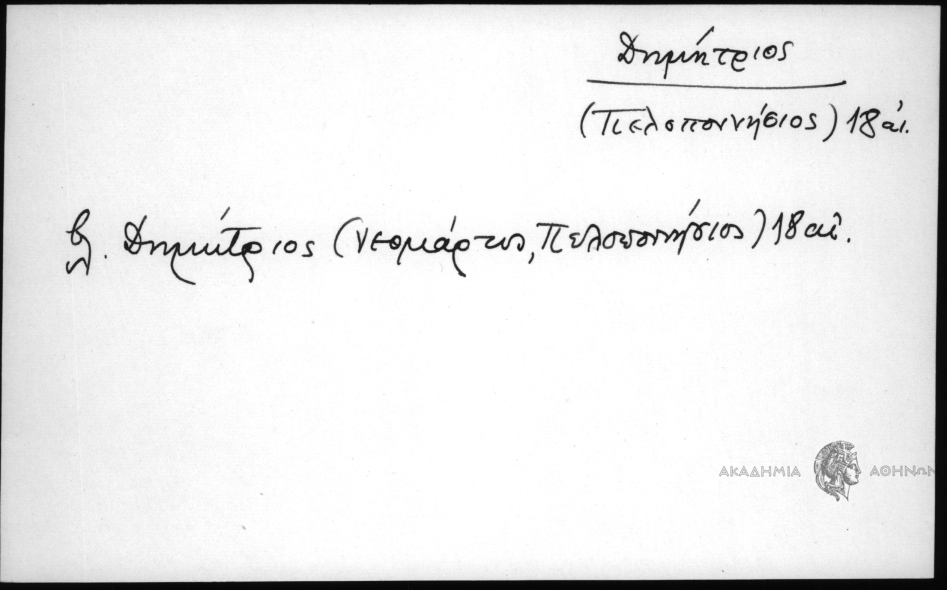 Δημήτριος
(Πελοποννήσιος) 18 αἰ.
βλ. Δημήτριος (νεομάρτυς, Πελοποννήσιος) 18 αἰ.
ΑΚΑΔΗΜΙΑ ΑΘΗΝΩΝ